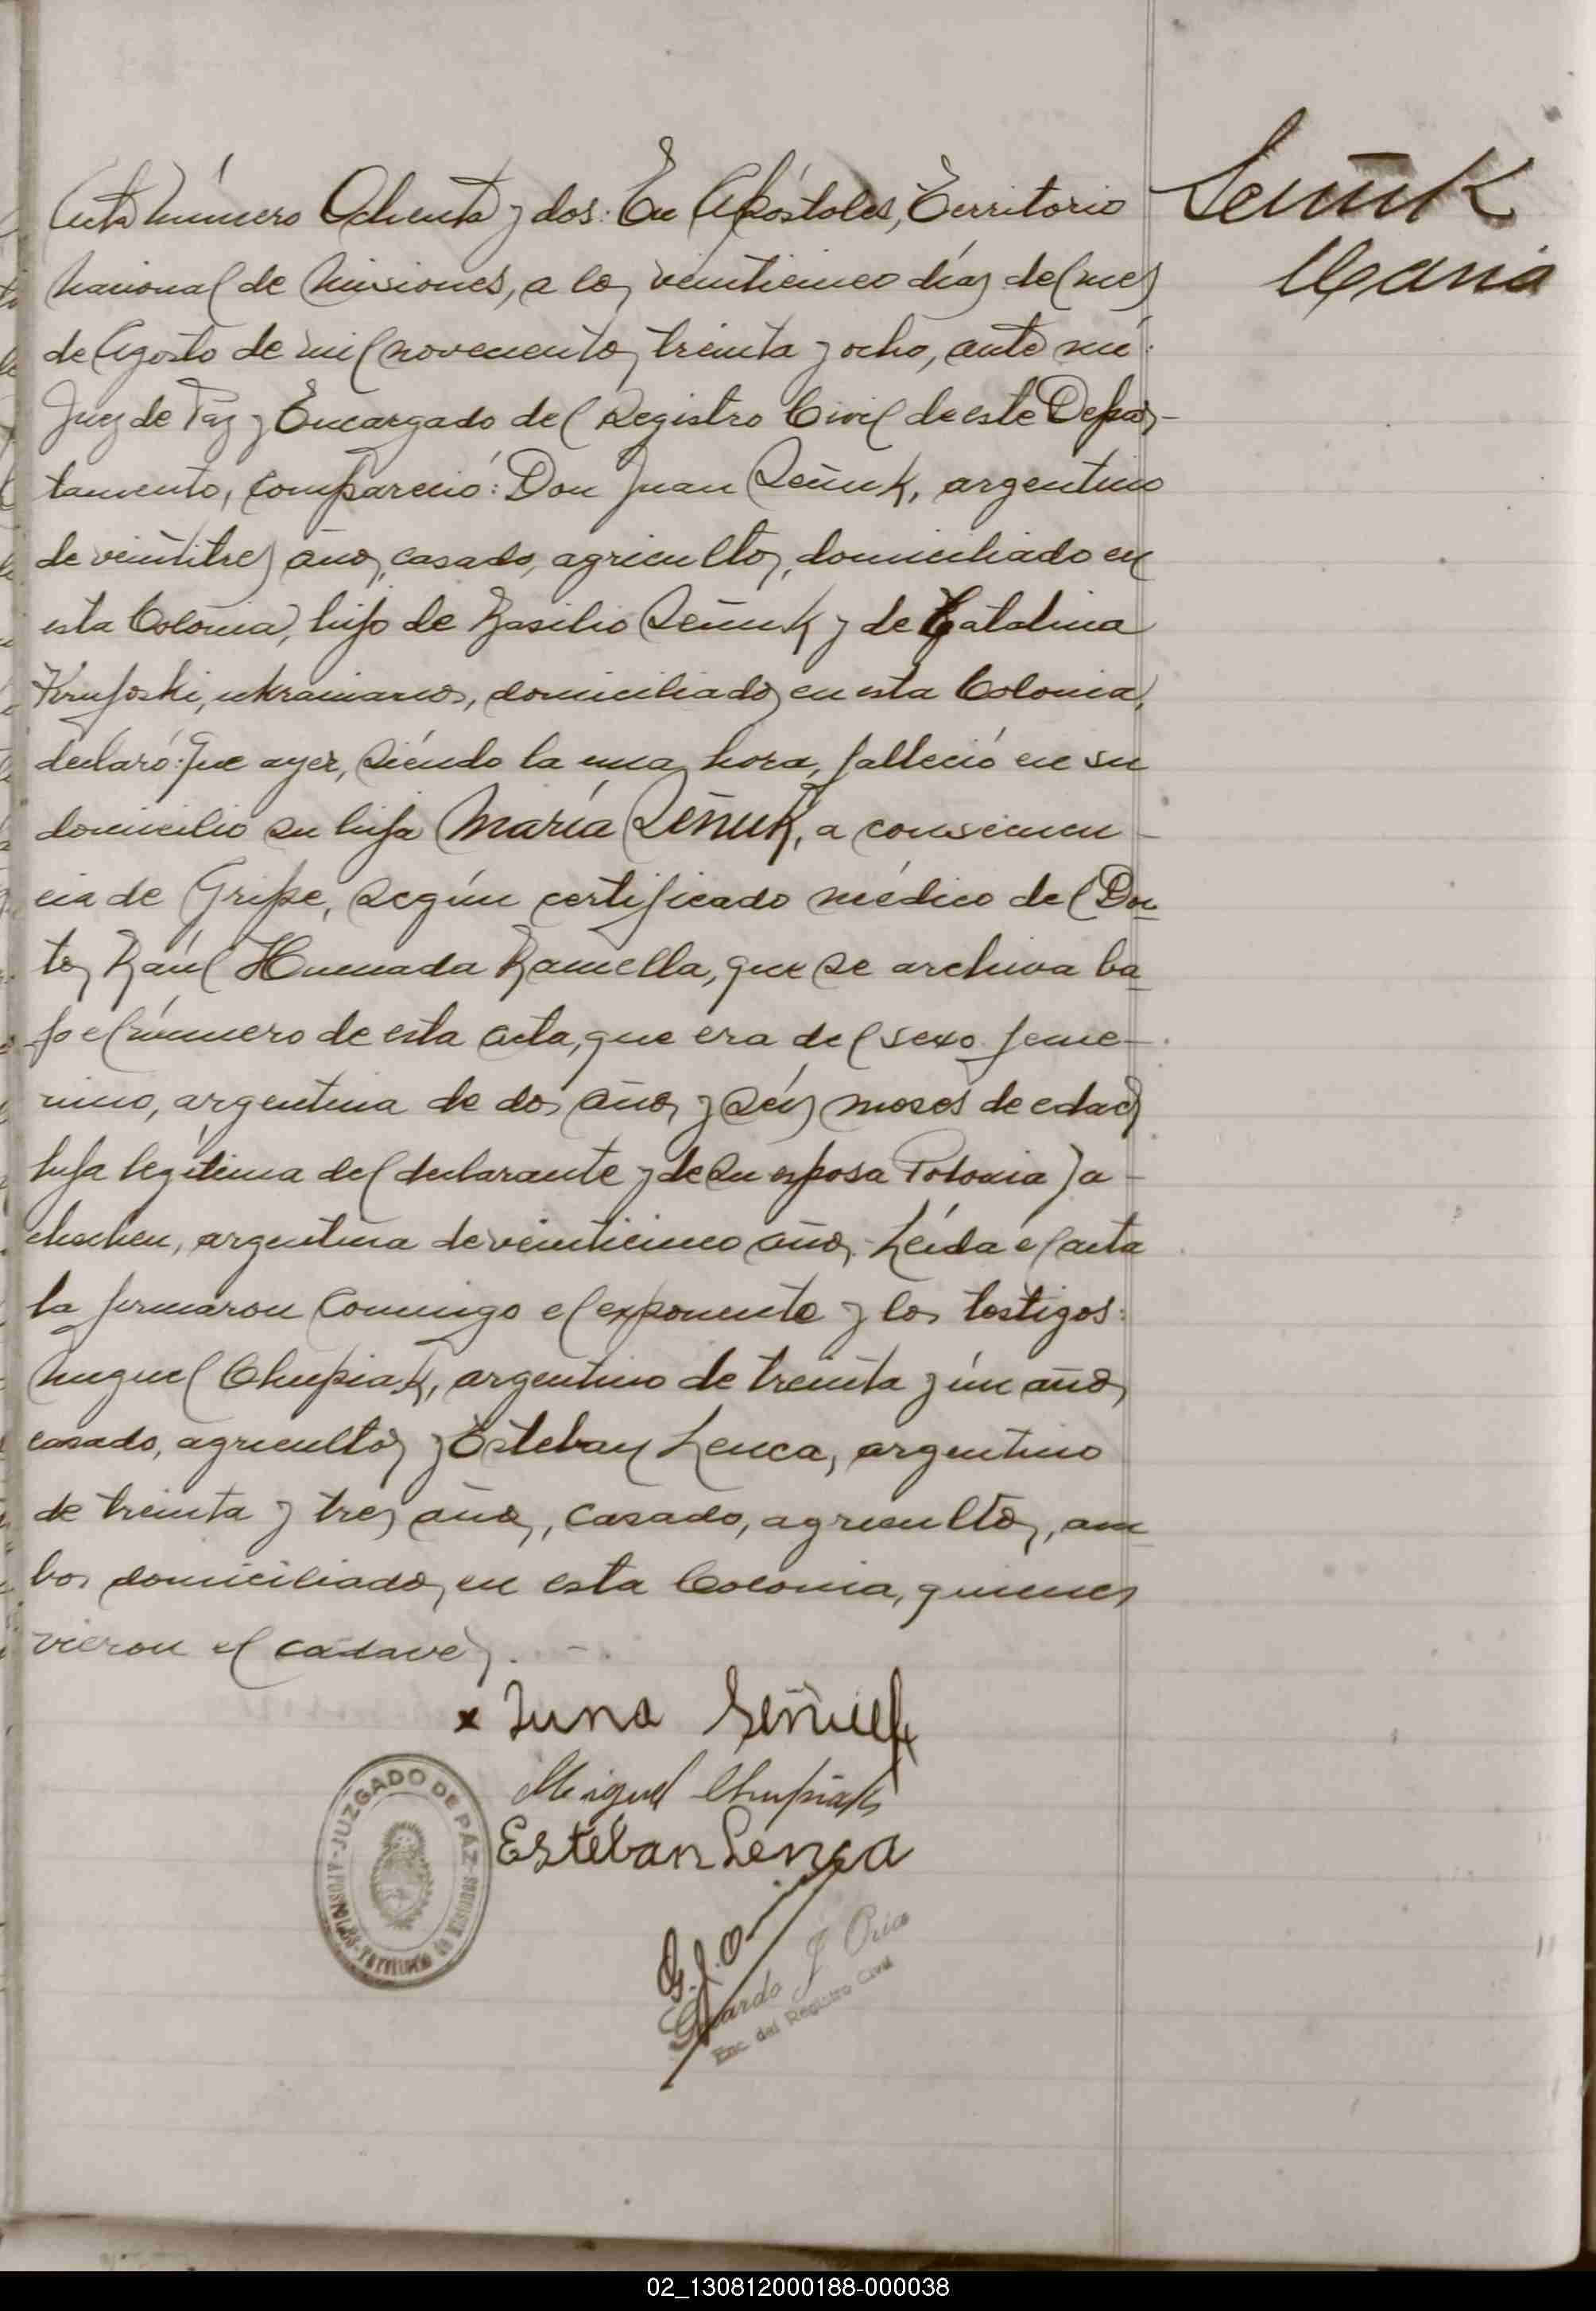 Acta número Ochenta y dos: En Apóstoles, Territorio
Nacional de Misiones, a los veinticinco días del mes
de Agosto de mil novecientos treinta y ocho, ante mi:
Juez de Paz y Encargado del Registro Civil de este Depar-
tamento, compareció: Don Juan Señuk, argentino
de veintitres años, casado, agricultor, domiciliado en
esta Colonia, hijo de Basilio Señuk y de Catalina
Krujoski, ukranianos, domiciliados en esta Colonia,
declaró: Que ayer, siéndo la una hora, falleció en su
domicilio su hija María Señuk, a consecuen-
cia de Gripe, según certificado médico del Doc
tor Raúl Humada Ramella, que se archiva ba
jo el número de esta acta, que era del sexo feme-
nino, argentina de dos años y séis meses de edad
hija legítima del declarante y de su esposa Polonia
argentina de veinticinco años.- Leída el acta
la firmaron conmigo el exponente y los testigos:
Miguel Chupiak, argentino de treinta y ún años,
casado, agricultor y Esteban Lenca, argentino
de treinta y tres años, casado, agricultor, am
bos domiciliados en esta Colonia, quienes
vieron el cadaver.-
Señuk
Maria
x Juna Señuk
Miguel Chupiak
Esteban Lenca
JUZGADO DE PAZ
APOSTOLES - Territorio de Misiones
G.J.O
J Oria
Enc. del Registro Civil
02_130812000188-000038